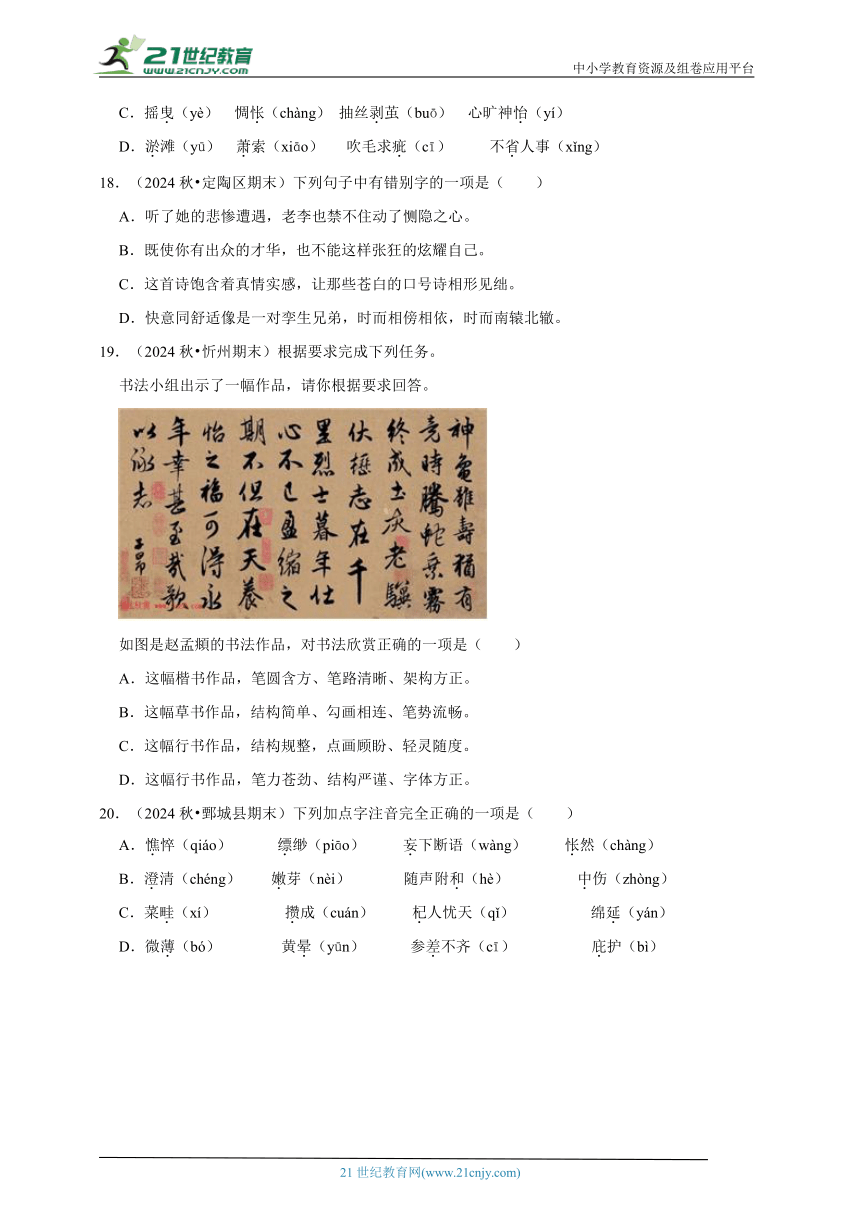 21世纪教育
WWW.21CNJY.COM
中小学教育资源及组卷应用平台
C．摇曳（yè） 惆怅（chàng） 抽丝剥茧（buō） 心旷神怡（yí）
D．淤滩（yū） 萧索（xiāo） 吹毛求疵（cī） 不省人事（xǐng）
18．（2024秋•定陶区期末）下列句子中有错别字的一项是（ ）
A．听了她的悲惨遭遇，老李也禁不住动了恻隐之心。
B．既使你有出众的才华，也不能这样张狂的炫耀自己。
C．这首诗饱含着真情实感，让那些苍白的口号诗相形见绌。
D．快意同舒适像是一对孪生兄弟，时而相傍相依，时而南辕北辙。
19．（2024秋•忻州期末）根据要求完成下列任务。
书法小组出示了一幅作品，请你根据要求回答。
神龟虽寿猶有
竟時騰蛇乗霧
终成土灰老驥
伏櫪志在千
里烈士暮年壮
心不已盈缩之
期不但在天養
怡之福可得永
年幸甚至哉歌
以詠志
子昂
如图是赵孟頫的书法作品，对书法欣赏正确的一项是（ ）
A．这幅楷书作品，笔圆含方、笔路清晰、架构方正。
B．这幅草书作品，结构简单、勾画相连、笔势流畅。
C．这幅行书作品，结构规整，点画顾盼、轻灵随度。
D．这幅行书作品，笔力苍劲、结构严谨、字体方正。
20．（2024秋•鄄城县期末）下列加点字注音完全正确的一项是（ ）
A．憔悴（qiáo） 缥缈（piāo） 妄下断语（wàng） 怅然（chàng）
B．澄清（chéng） 嫩芽（nèi） 随声附和（hè） 中伤（zhòng）
C．菜畦（xí） 攒成（cuán） 杞人忧天（qǐ） 绵延（yán）
D．微薄（bó） 黄晕（yūn） 参差不齐（cī） 庇护（bì）
21世纪教育网(www.21cnjy.com)